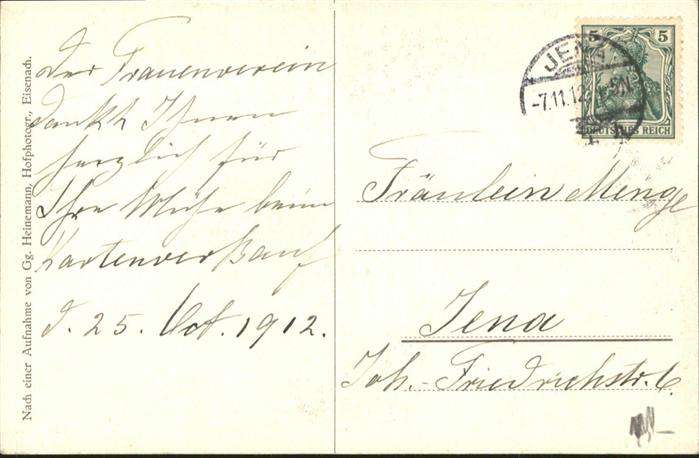 Der Frauenverein
dankt Ihnen
herzlich für
Ihre Mühe beim
Kartenverkauf
d. 25. Oct. 1912.
Nach einer Aufnahme von Gg. Heinemann, Hofphotogr., Eisenach.
5 5
DEUTSCHES REICH
JENA
-7.11.12.
Fräulein Menge
Jena
Joh.-Friedrichstr. 6.